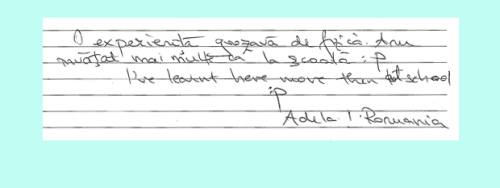 O experiență grozavă de fizică. Am
învățat mai mult ca la școală :p
I've learnt here more then at school
:p
Adela I. Romania